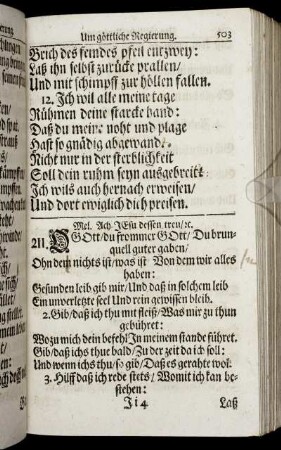 Um göttliche Regierung. 503
Brich des feindes pfeil entzwey:
Laß ihn selbst zurücke prallen/
Und mit schimpff zur höllen fallen.
12. Ich wil alle meine tage
Rühmen deine starcke hand:
Daß du meine noht und plage
Hast so gnädig abgewand.
Nicht nur in der sterblichkeit
Soll dein ruhm seyn ausgebreitt:
Ich wils auch hernach erweisen/
Und dort ewiglich dich preisen.
Mel. Ach JEsu dessen treu/ꝛc.
GOtt/du frommer GOtt/ Du brun-
quell guter gaben/
Ohn dem nichts ist/was ist Von dem wir alles
haben:
Gesunden leib gib mir/Und daß in solchem leib
Ein unverletzte seel Und rein gewissen bleib.
2. Gib/daß ich thu mit fleiß/Was mir zu thun
gebühret:
Wozu mich dein befehl In meinem stande führet.
Gib/daß ichs thue bald/Zu der zeit da ich soll:
Und wenn ichs thu/so gib/Daß es gerahte wol:
3. Hilff daß ich rede stets/Womit ich kan be-
stehen:
Ji 4 Laß